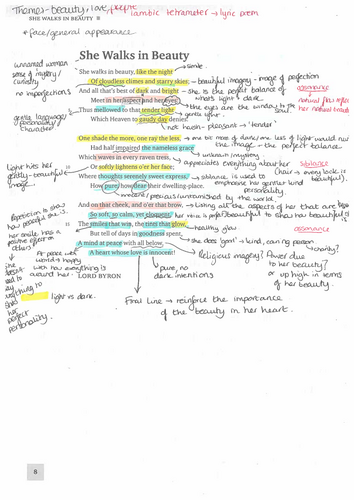 Themes - beauty, love, people
iambic tetrameter → lyric poem
SHE WALKS IN BEAUTY 8
* face/general appearance
She Walks in Beauty
unnamed woman
sense of mystery/
curiosity
She walks in beauty, like the night → simile
Of cloudless climes and starry skies; → beautiful imagery - image of perfection
no imperfections
And all that's best of dark and bright → she is the perfect balance of
what's light + dark
assonance
Meet in her aspect and her eyes:
the eyes are the window to the soul
gentle language/
personality/
character
Thus mellowed to that tender light
gentle
Which Heaven to gaudy day denies.
not harsh - pleasant → 'tender'
One shade the more, one ray the less,
one bit more of dark/one less of light would ruin
the image → the perfect balance
Had half impaired the nameless grace
unknown/mystery
Which waves in every raven tress,
appreciates everything about her
(hair → every lock is
beautiful).
sibilance
light hits her
gently - beautiful
image.
Or softly lightens o'er her face;
Where thoughts serenely sweet express
→ sibilance is used to
emphasise her gentle/kind
personality.
How pure, how dear their dwelling-place.
innocent/precious/untarnished by the world.
And on that cheek, and o'er that brow,
→ loving all the aspects of her that are
Repetition to show
how peaceful she is.
So soft, so calm, yet eloquent,
her voice is beautiful to show how beautiful she is
her smile has a
positive effect on
others
The smiles that win, the tints that glow,
healthy glow
assonance
But tell of days in goodness spent,
→ she does 'good' → kind, caring person
charity?
At peace with
world + happy
with how everything is
around her.
A mind at peace with all below,
A heart whose love is innocent!
Religious imagery? Power due
to her beauty?
or up high in terms
of her beauty.
LORD BYRON
pure, no
dark intentions
light vs dark.
perfect
personality.
Final line → reinforce the importance
of the beauty in her heart.
8